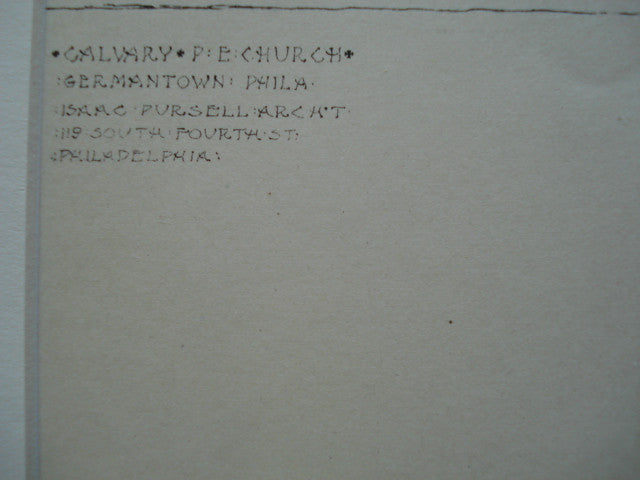 •CALVARY•P:E:CHURCH•
:GERMANTOWN: PHILA·
:ISAAC·PURSELL:ARCH'T·
:119·SOUTH·FOURTH·ST:
:PHILADELPHIA: